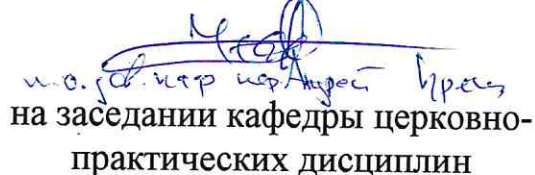 и.о. зав. каф. иер. Андрей
на заседании кафедры церковно-
практических дисциплин